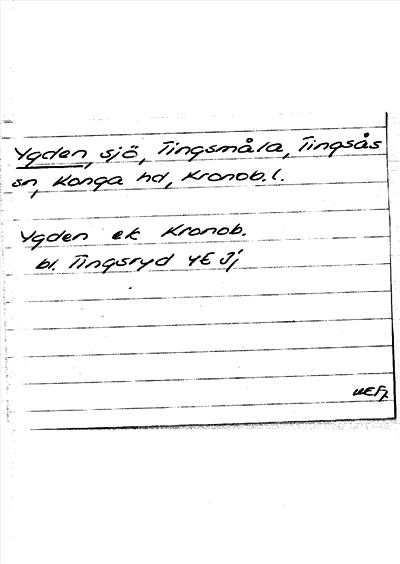 Ygden, sjö, Tingsmåla, Tingsås
sn, Konga hd, Kronob.l.
Ygden ek Kronob.
bl. Tingsryd 4E Jj